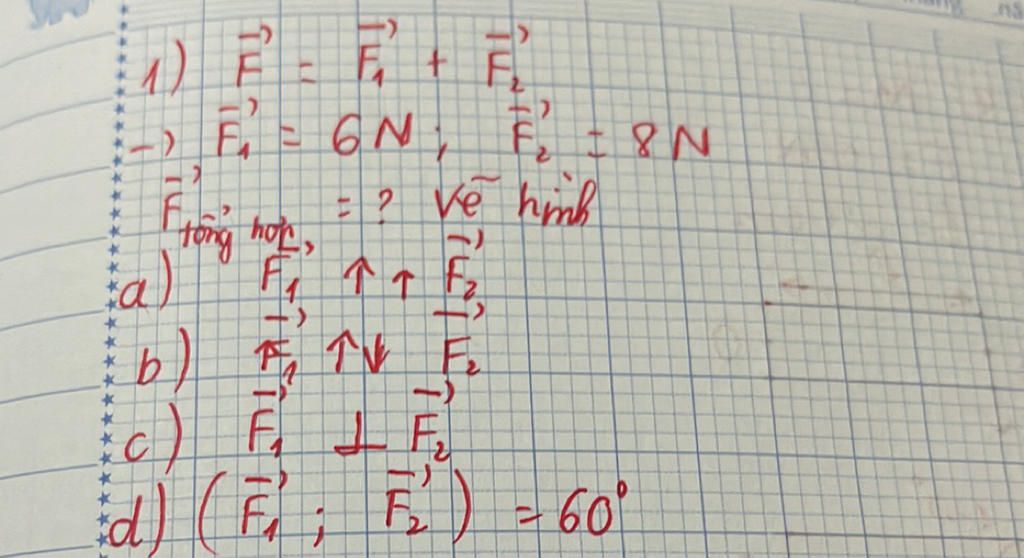 1) F⃗ = F⃗₁ + F⃗₂
→ F⃗₁ = 6N; F⃗₂ = 8N
F⃗ tổng hợp = ? Vẽ hình
a) F⃗₁ ↑↑ F⃗₂
b) F⃗₁ ↑↓ F⃗₂
c) F⃗₁ ⊥ F⃗₂
d) (F⃗₁ ; F⃗₂) = 60°